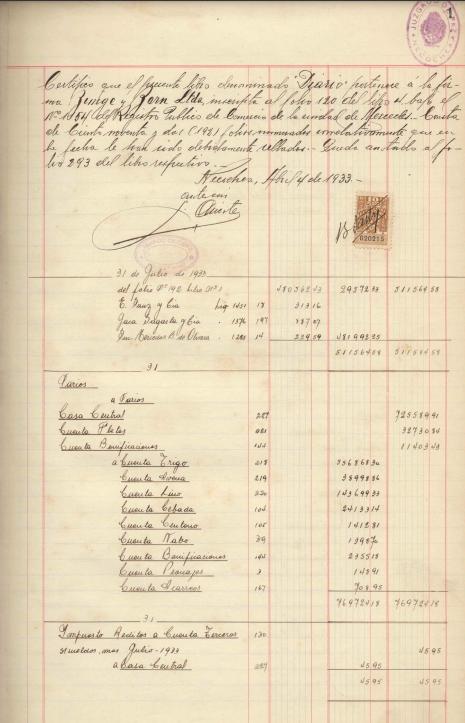 1
JUZGADO DE PAZ
Certifico que el presente libro denominado "Diario" pertenece á la fir-
ma Bunge y Born Ltda, inscripta al folio 120 del libro 2 bajo el
Nº 1454 del Registro Público de Comercio de la ciudad de Mercedes. Consta
de Ciento noventa y dos (192) folios numerados correlativamente que en
la fecha le han sido debidamente sellados. - Queda anotado al fo-
lio 293 del libro respectivo. -
Necochea, Abril 4 de 1933 -
ante mi
020215
31 de Julio de 1933
del folio Nº 192 Libro Nº 1 48056243 2957233 51156458
E. y Cia 1451 18 31316
y Cia 1376 197
de Olivera 1288 14 22454 48199225
51156458 51156458
31
Varios
a Varios
Casa Central 227 72558991
Cuenta Fletes 3273084
Cuenta Bonificaciones 144 1140343
a Cuenta Trigo 218 55686830
Cuenta Avena 219 3899886
Cuenta Lino 220 14369933
Cuenta Cebada 104 2413314
Cuenta Centeno 105 141281
Cuenta Nabo 39 139870
Cuenta Bonificaciones 144 235518
Cuenta 3 14891
Cuenta Acarreos 167 70895
76972418 76972418
31
Impuesto Reditos a Cuenta Terceros 130
s/sueldos, mes Julio-1933 4595
a Casa Central 227 4595
4595 4595